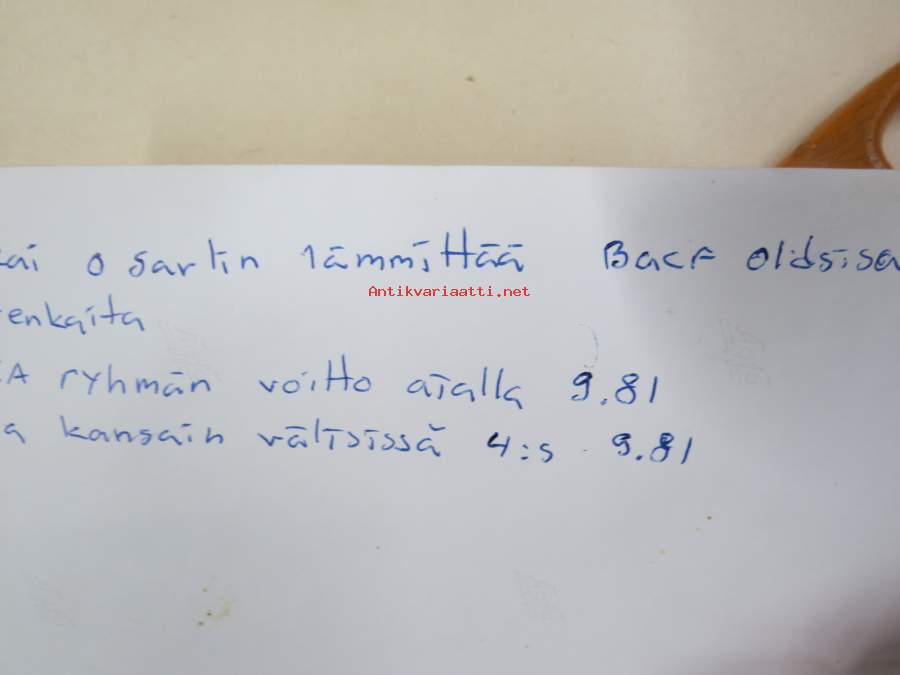 ai o sarlin lämmittää Bacf oldsisa
Antikvariaatti.net
enkaita
A ryhmän voitto aialla 9.81
a kansain välisissä 4:s 9.81